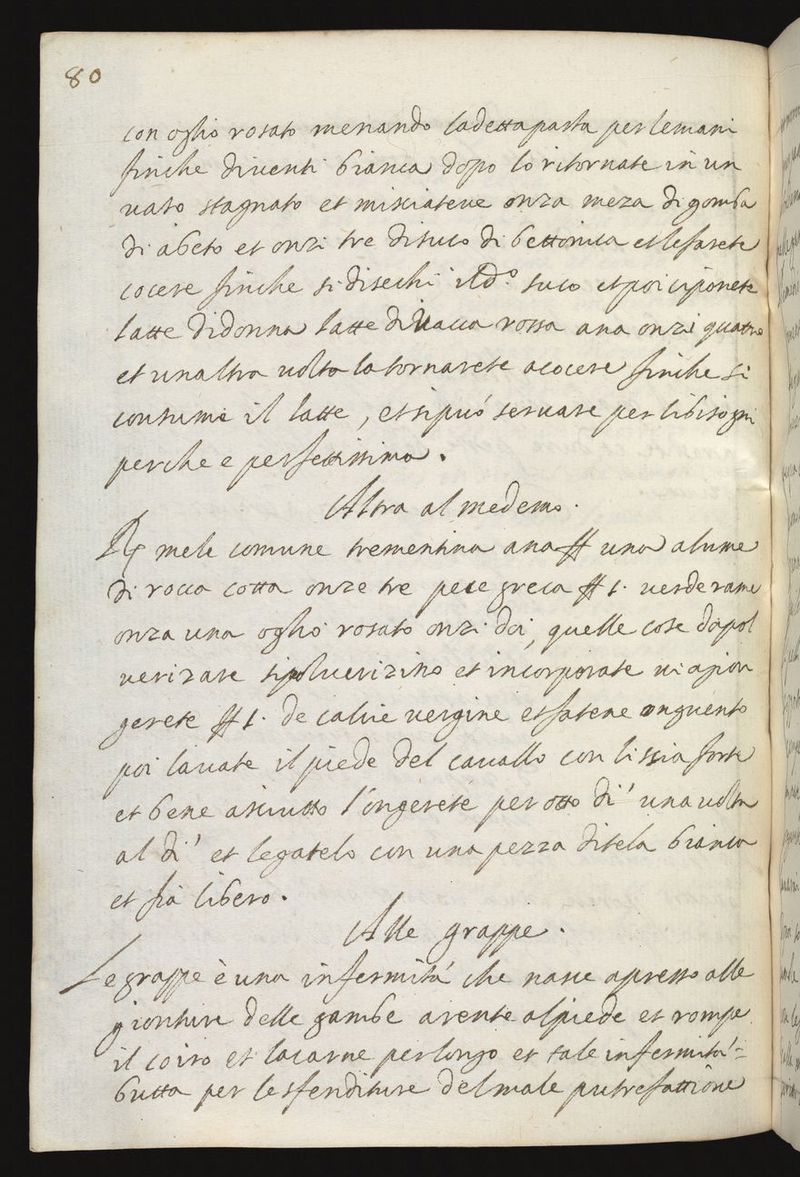 80
con oglio rosato menando ladetta pasta per le mani
finche diventi bianca dopo lo ritornate in un
vaso stagnato et misciateve onza meza di gomba
di abeto et onzi tre di suco di bettonica et lo farete
cocere finche si disechi il d.º suco et poi ci ponete
latte di donna latte di vacca rossa ana onzi quattro
et unaltra volta lo tornarete a cocere finche si
consumi il latte, et si può servare per li bisogni
perche e perfettissimo.
Altra al medemo.
℞ mele comune trementina ana ℔ una alume
di rocca cotta onze tre pece greca ℔ 1. verderame
onza una oglio rosato onzi doi, quelle cose da pol
verizare si polverizino et incorporate vi agion
gerete ℔ 1. de calcie vergine et fatene onguento
poi lavate il piede del cavallo con lissia forte
et bene asciutto l'ongerete per otto di' una volta
al di' et legatelo con una pezza di tela bianca
et fia libero.
Alle grappe.
Le grappe è una infermitá che nasce apresso alle
gionture delle gambe arente al piede et rompe
il coiro et la carne per longo et tale infermitá=
butta per le sfenditure del male putrefattione